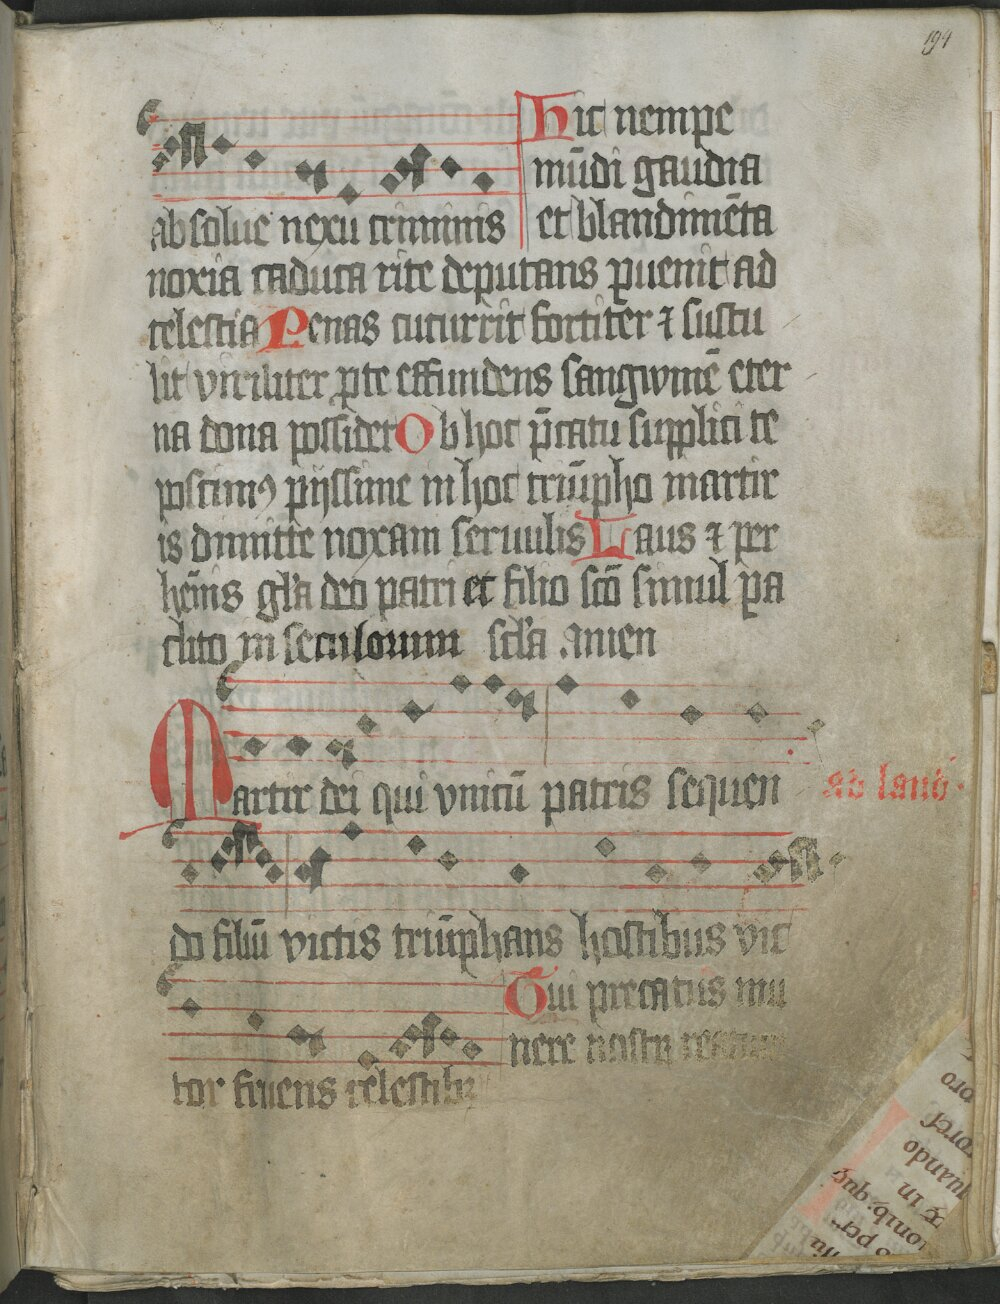 194
Hic nempe
mūdi gaudia
absolue nexu criminis
et blandimēta
noxia caduca rite deputans ꝑuenit ad
celestia Penas cucurrit fortiter ⁊ sustu
lit viriliter ꝓ te effundens sangwinē eter
na dona possidet Ob hoc p̄catu supplici te
poscimꝰ pijssime in hoc triūpho martir
is dimitte noxam seruulis Laus ⁊ per
hēnis gl'a deo patri et filio scō simul pa
clito in seculorum scl'a amen
Martir dei qui vnicū patris sequen
ad laud
do filiū victis triūphans hostibus vic
Tui precatus mu
nere nostrū
tor fruens celestibꝰ
oro
oref
uando
in